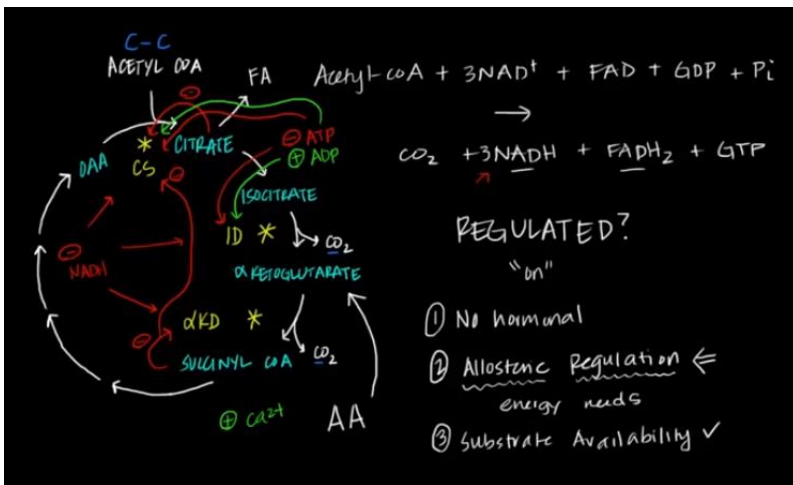 C-C
ACETYL COA
FA
* CITRATE
CS
OAA
⊖ ATP
⊕ ADP
ISOCITRATE
ID *
CO2
α KETOGLUTARATE
⊖
NADH
αKD *
SUCCINYL COA
CO2
⊕ Ca2+
AA
Acetyl-coA + 3NAD+ + FAD + GDP + Pi
→
CO2 + 3NADH + FADH2 + GTP
REGULATED?
"on"
① No hormonal
② Allosteric Regulation ⇐
energy needs
③ Substrate Availability ✓